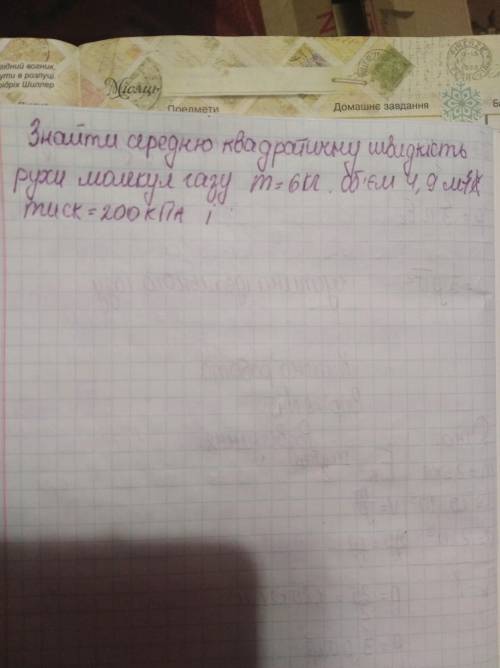 ідний вогник,
ути в розпуці.
рідріх Шиллер
Місяць
Предмети
Домашнє завдання
Знайти середню квадратичну швидкість
рухи молекул газу m=6кг. об'єм 4,9 м³
тиск=200кПа і